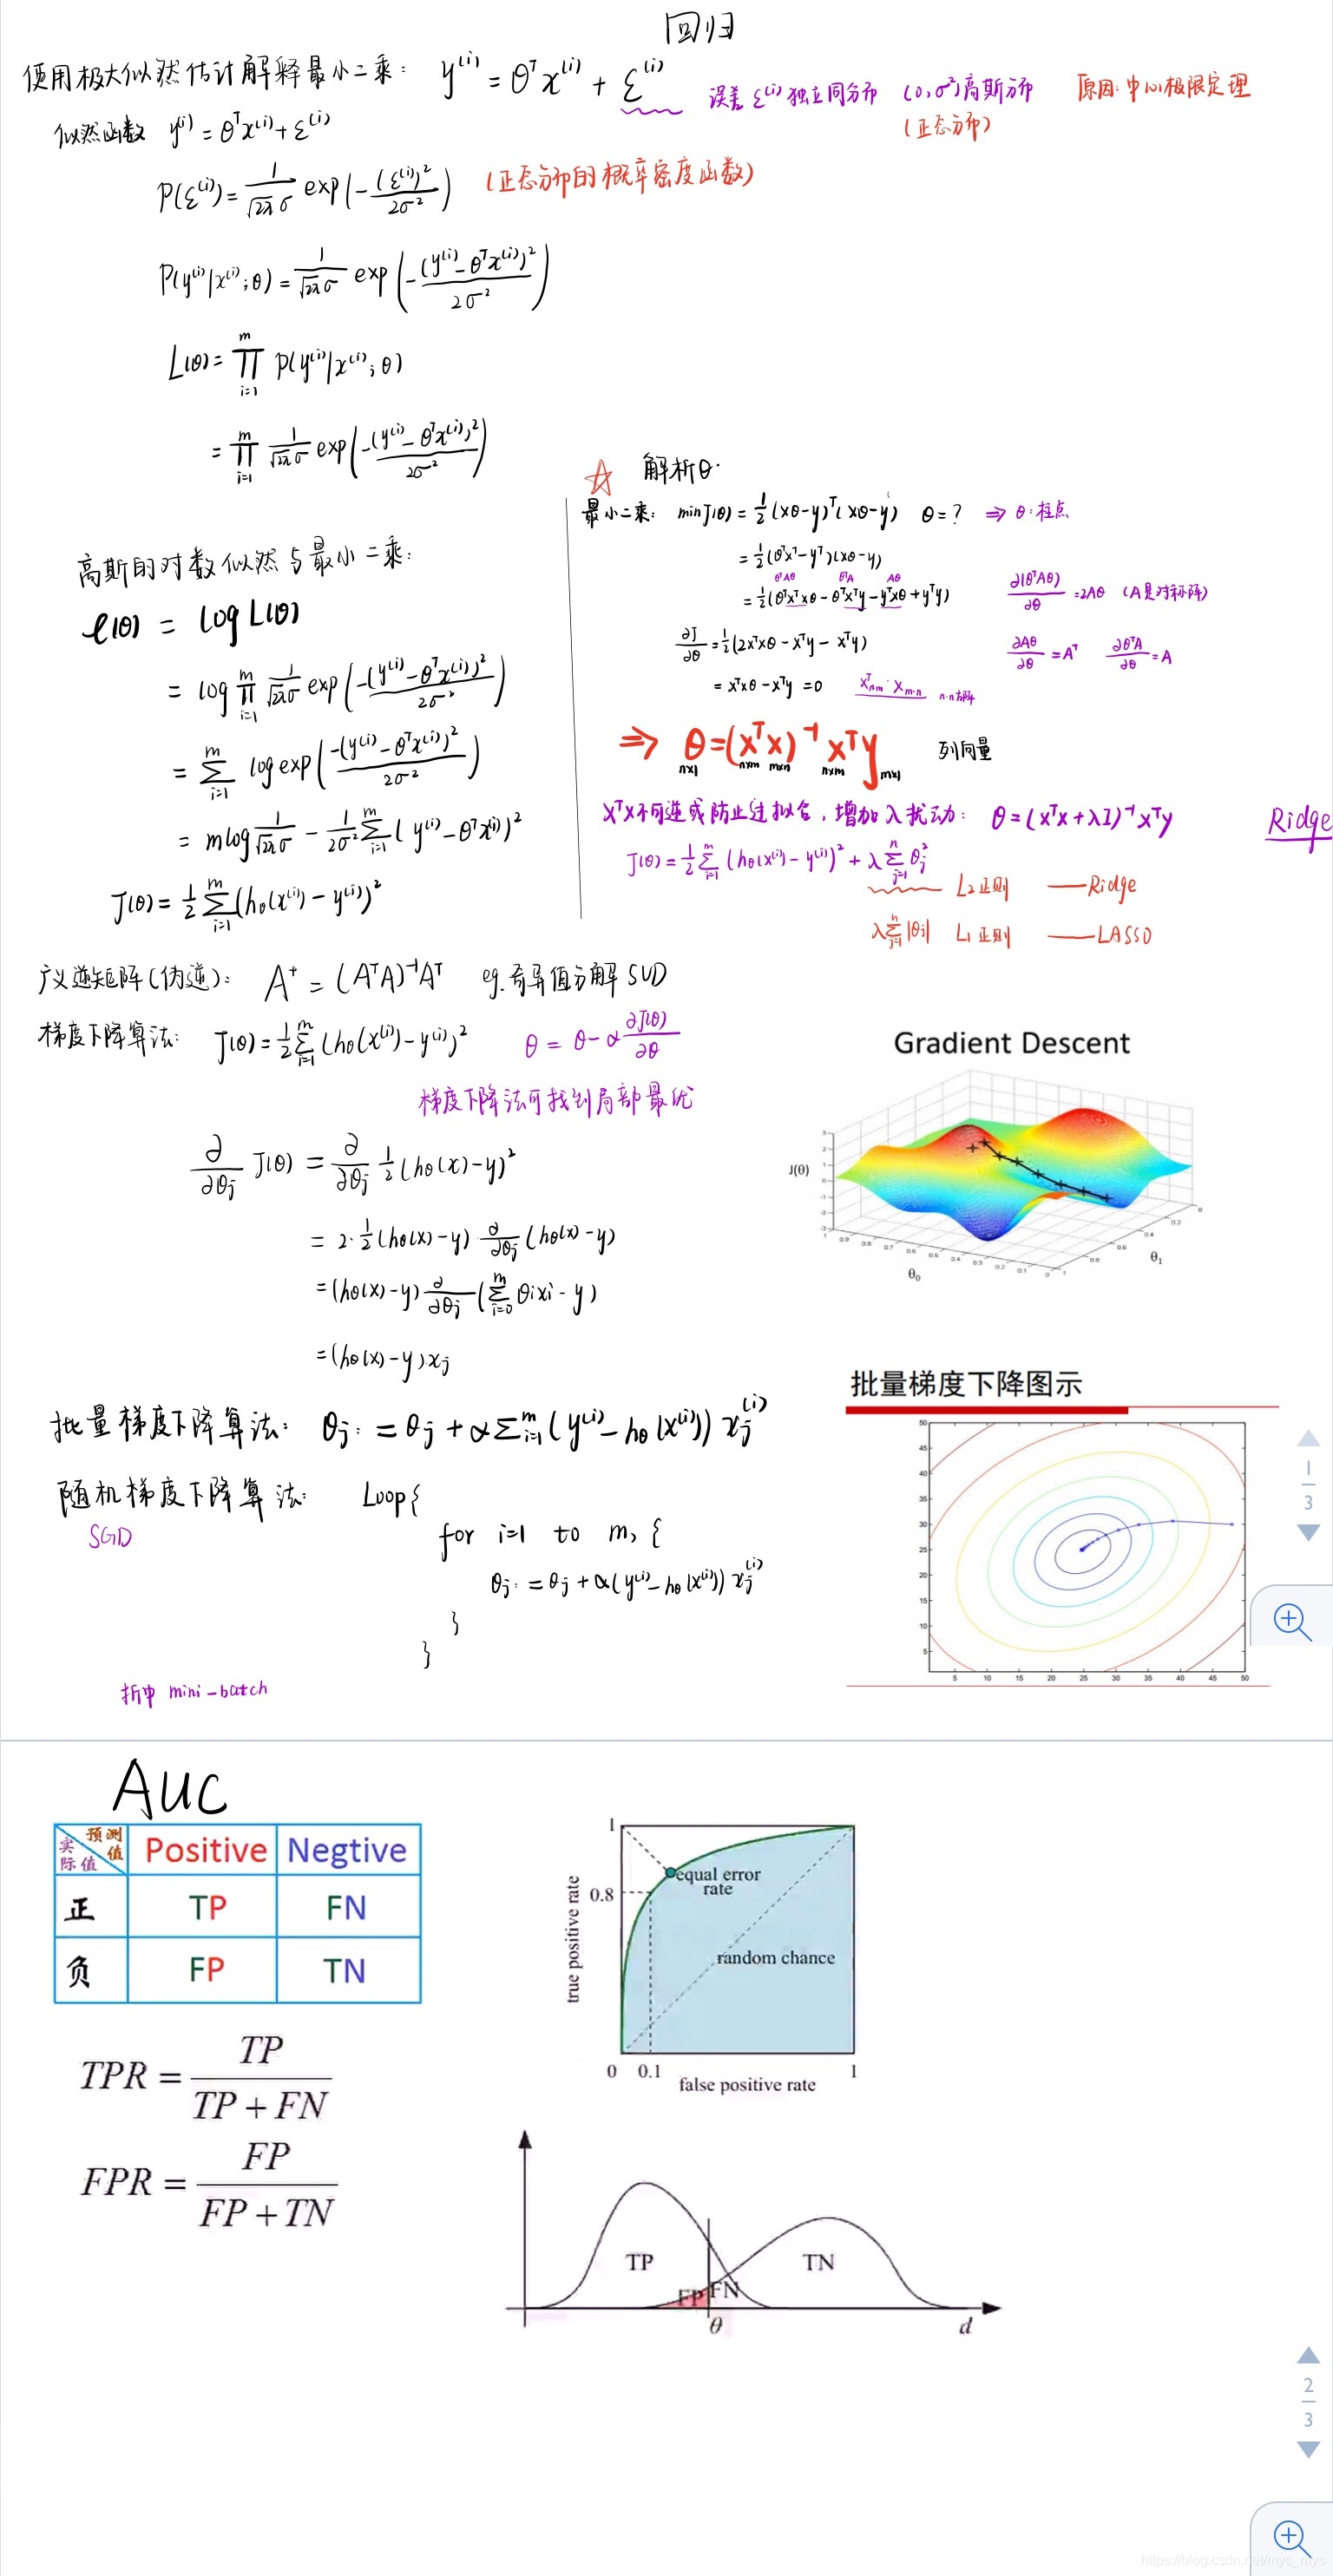 回归
使用极大似然估计解释最小二乘: y⁽ⁱ⁾ = θᵀx⁽ⁱ⁾ + ε⁽ⁱ⁾ 误差 ε⁽ⁱ⁾ 独立同分布 (0,σ²)高斯分布 原因:中心极限定理
(正态分布)
似然函数 y⁽ⁱ⁾ = θᵀx⁽ⁱ⁾ + ε⁽ⁱ⁾
P(ε⁽ⁱ⁾) = 1/(√2π σ) exp(-(ε⁽ⁱ⁾)²/2σ²) (正态分布的概率密度函数)
P(y⁽ⁱ⁾|x⁽ⁱ⁾;θ) = 1/(√2π σ) exp(-(y⁽ⁱ⁾-θᵀx⁽ⁱ⁾)²/2σ²)
L(θ) = ∏ᵢ₌₁ᵐ P(y⁽ⁱ⁾|x⁽ⁱ⁾;θ)
= ∏ᵢ₌₁ᵐ 1/(√2π σ) exp(-(y⁽ⁱ⁾-θᵀx⁽ⁱ⁾)²/2σ²)
高斯的对数似然与最小二乘:
ℓ(θ) = log L(θ)
= log ∏ᵢ₌₁ᵐ 1/(√2π σ) exp(-(y⁽ⁱ⁾-θᵀx⁽ⁱ⁾)²/2σ²)
= ∑ᵢ₌₁ᵐ log exp(-(y⁽ⁱ⁾-θᵀx⁽ⁱ⁾)²/2σ²)
= m log 1/(√2π σ) - 1/2σ² ∑ᵢ₌₁ᵐ (y⁽ⁱ⁾-θᵀx⁽ⁱ⁾)²
J(θ) = ½ ∑ᵢ₌₁ᵐ (hθ(x⁽ⁱ⁾)-y⁽ⁱ⁾)²
☆ 解析θ.
最小二乘: min J(θ) = ½(xθ-y)ᵀ(xθ-y) θ=? ⇒ θ:驻点
= ½(θᵀxᵀ-yᵀ)(xθ-y)
θᵀAθ θᵀA Aθ
= ½(θᵀxᵀxθ - θᵀxᵀy - yᵀxθ + yᵀy) ∂(θᵀAθ)/∂θ = 2Aθ (A是对称阵)
∂J/∂θ = ½(2xᵀxθ - xᵀy - xᵀy) ∂Aθ/∂θ = Aᵀ ∂θᵀA/∂θ = A
= xᵀxθ - xᵀy = 0 xᵀn·m · xm·n n·n方阵
⇒ θ = (xᵀx)⁻¹xᵀy 列向量
n×1 n×m m×n n×m m×1
xᵀx不可逆或防止过拟合,增加λ扰动: θ = (xᵀx+λI)⁻¹xᵀy Ridge
J(θ) = ½ ∑ᵢ₌₁ᵐ (hθ(x⁽ⁱ⁾)-y⁽ⁱ⁾)² + λ∑ⱼ₌₁ⁿ θⱼ²
L₂正则 —— Ridge
λ∑ⱼ₌₁ⁿ |θj| L₁正则 —— LASSO
广义逆矩阵(伪逆): A⁺ = (AᵀA)⁻¹Aᵀ eg.奇异值分解 SVD
梯度下降算法: J(θ) = ½ ∑ᵢ₌₁ᵐ (hθ(x⁽ⁱ⁾)-y⁽ⁱ⁾)² θ = θ-α ∂J(θ)/∂θ
梯度下降法可找到局部最优
∂/∂θj J(θ) = ∂/∂θj ½(hθ(x)-y)²
= 2·½(hθ(x)-y) ∂/∂θj (hθ(x)-y)
= (hθ(x)-y) ∂/∂θj (∑ᵢ₌₀ᵐ θixi - y)
= (hθ(x)-y)xj
Gradient Descent
J(θ)
3
2
1
0
-1
-2
-3
1 0.9 0.8 0.7 0.6 0.5 0.4 0.3 0.2 0.1 0
θ₀
1 0.8 0.6 0.4 0.2 0
θ₁
批量梯度下降算法: θj := θj + α∑ᵢ₌₁ᵐ (y⁽ⁱ⁾-hθ(x⁽ⁱ⁾)) xj⁽ⁱ⁾
随机梯度下降算法: Loop{
SGD
for i=1 to m, {
θj := θj + α(y⁽ⁱ⁾-hθ(x⁽ⁱ⁾)) xj⁽ⁱ⁾
}
}
折中 mini-batch
批量梯度下降图示
50
45
40
35
30
25
20
15
10
5
5 10 15 20 25 30 35 40 45 50
1
3
AUC
预测值 实际值 Positive Negtive
正 TP FN
负 FP TN
TPR = TP/(TP+FN)
FPR = FP/(FP+TN)
1
0.8
true positive rate
equal error
rate
random chance
0 0.1 1
false positive rate
TP FP FN TN
θ d
2
3
https://blog.csdn.net/mys_mys